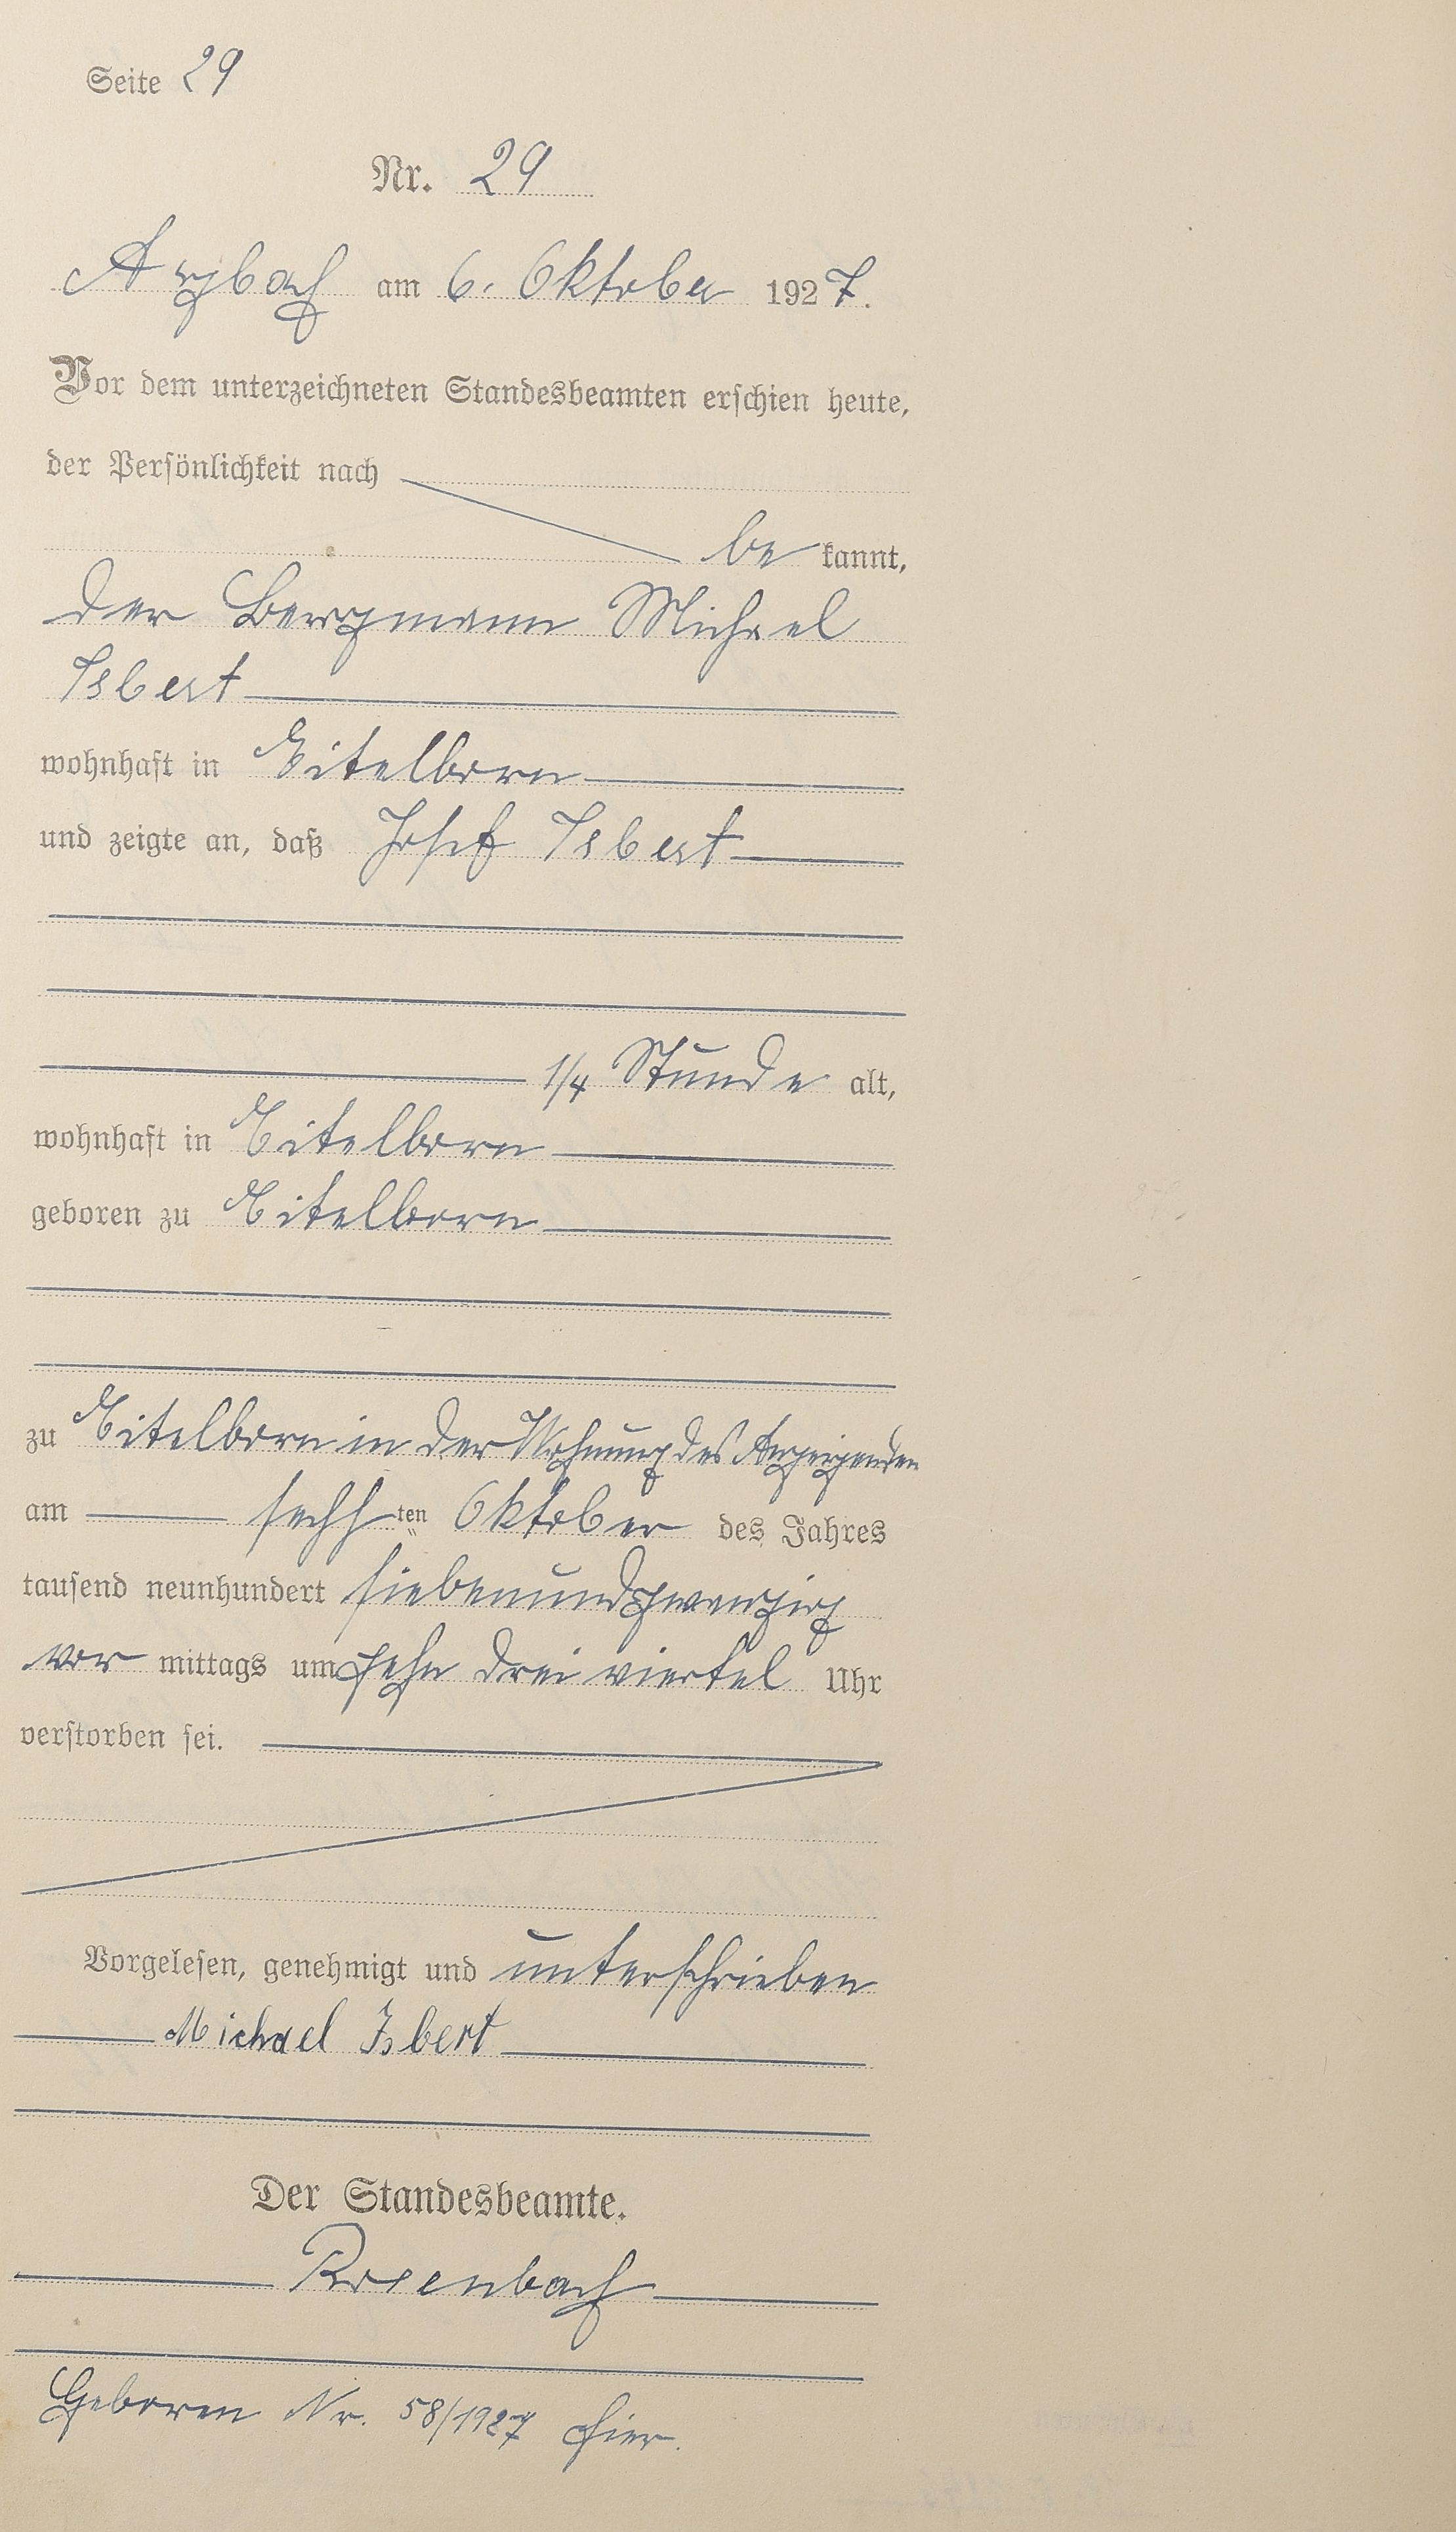 Seite 29
Nr. 29
Arzbach am 6. Oktober 1927.
Vor dem unterzeichneten Standesbeamten erschien heute,
der Persönlichkeit nach
be kannt,
der Bergmann Michael
Isbert
wohnhaft in Eitelborn
und zeigte an, daß Josef Isbert
1/4 Stunde alt,
wohnhaft in Eitelborn
geboren zu Eitelborn
zu Eitelborn in der Wohnung des Anzeigenden
am sechs ten Oktober des Jahres
tausend neunhundert siebenundzwanzig
vor mittags um zehn drei viertel Uhr
verstorben sei.
Vorgelesen, genehmigt und unterschrieben
Michael Isbert
Der Standesbeamte.
Rosenbach
Geboren Nr. 58/1927 hier.